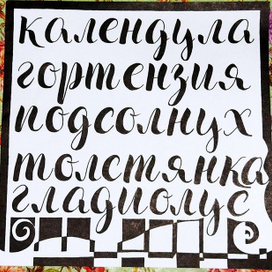 календула
гортензия
подсолнух
толстянка
гладиолус